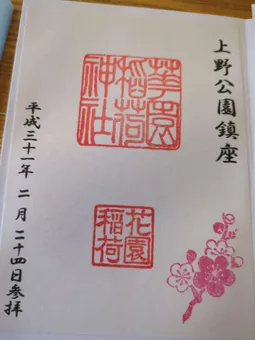 上野公園鎮座
華園
稲荷
神社
花園
稲荷
平成三十一年 二月二十四日参拝